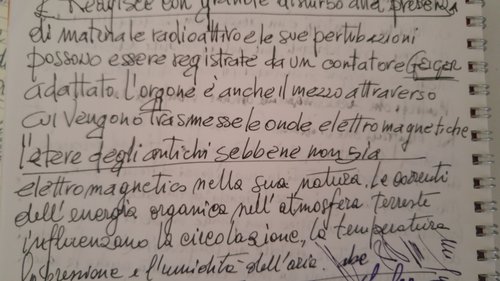 2. Reagisce con grande disturbo alla presenza
di materiale radioattivo e le sue pertubazioni
possono essere registrate da un contatore GEIGER
adattato. L'orgone è anche il mezzo attraverso
cui vengono trasmesse le onde elettromagnetiche
l'etere degli antichi sebbene non sia
elettromagnetico nella sua natura. Le correnti
dell'energia organica nell'atmosfera terreste
influenzano la circolazione, la temperatura
la pressione e l'umidità dell'aria.